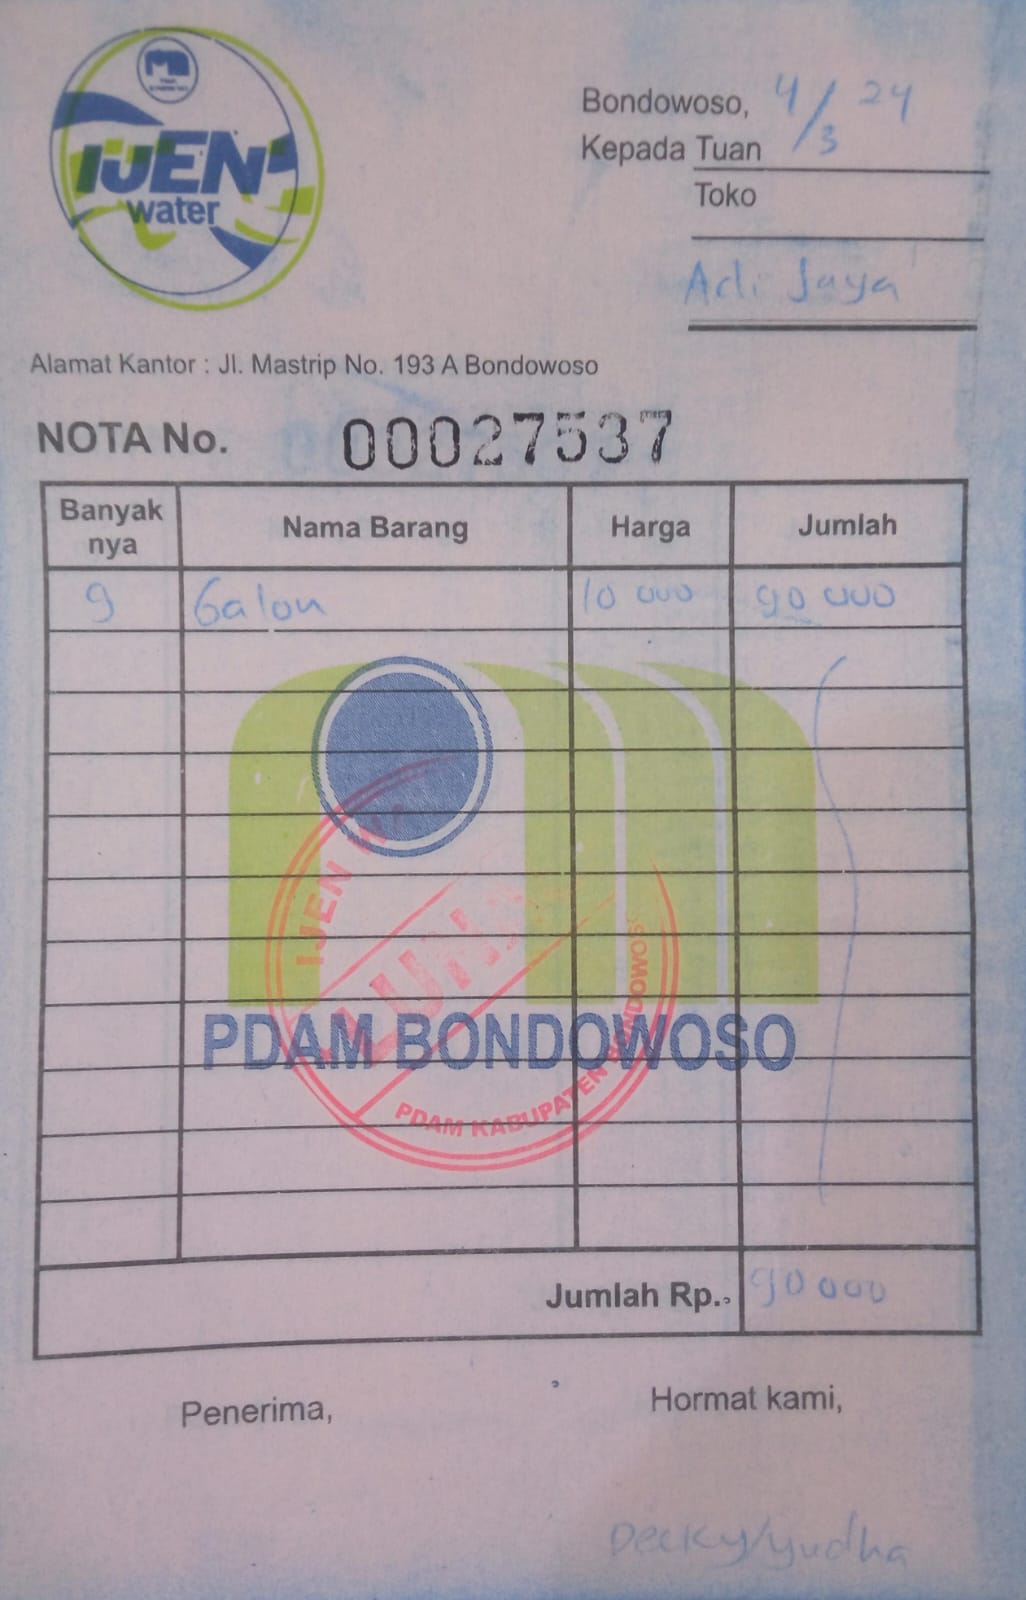 IJEN
water
Bondowoso, 4/3 24
Kepada Tuan
Toko
Adi Jaya
Alamat Kantor : Jl. Mastrip No. 193 A Bondowoso
NOTA No. 00027537
Banyak nya Nama Barang Harga Jumlah
9 Galon 10 000 90 000
IJEN
LUNAS
PDAM BONDOWOSO
PDAM KABUPATEN BONDOWOSO
Jumlah Rp. 90 000
Penerima, Hormat kami,
Decky/yudha